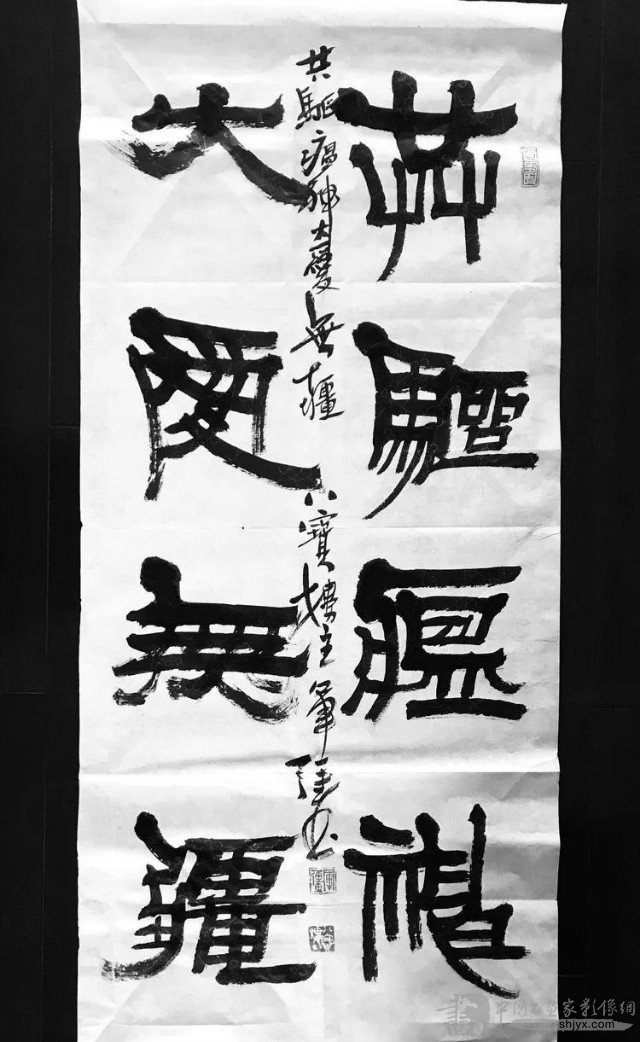 共驅瘟神
大愛無疆
共驅瘟神大愛無疆 八寶樓主軍
中国書画家影像網
shjyx.com